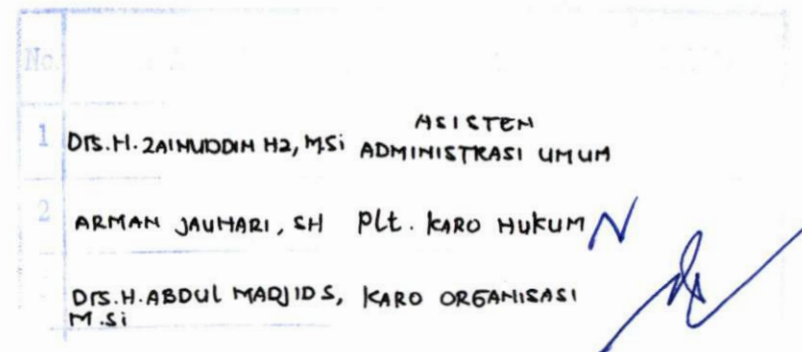 No.
1 Drs.H. ZAINUDDIN HZ, M.Si ASISTEN
ADMINISTRASI UMUM
2 ARMAN JAUHARI, SH Plt. KARO HUKUM
Drs.H.ABDUL MADJID S, KARO ORGANISASI
M.Si